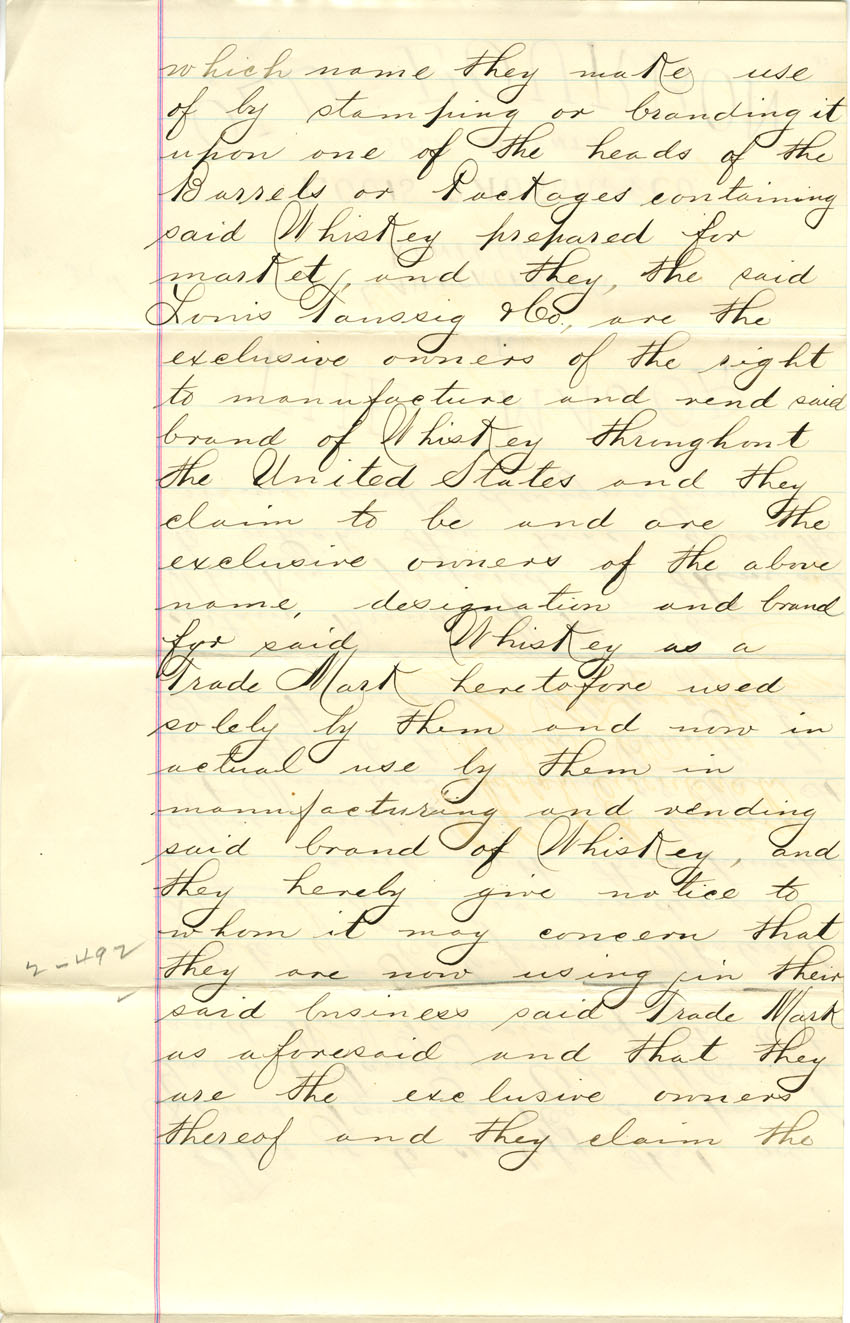 which name they make use
of by stamping or branding it
upon one of the heads of the
Barrels or Packages containing
said Whiskey prepared for
market, and they, the said
Louis Taussig & Co., are the
exclusive owners of the right
to manufacture and vend said
brand of Whiskey throughout
the United States and they
claim to be and are the
exclusive owners of the above
name, designation and brand
for said Whiskey as a
Trade Mark heretofore used
solely by them and now in
actual use by them in
manufacturing and vending
said brand of Whiskey, and
they hereby give notice to
whom it may concern that
2-492
they are now using in their
said business said Trade Mark
as aforesaid and that they
are the exclusive owners
thereof and they claim the